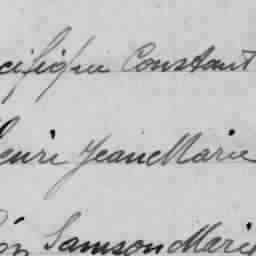 cifique Constant
Henri Jean Marie
Samson Marie